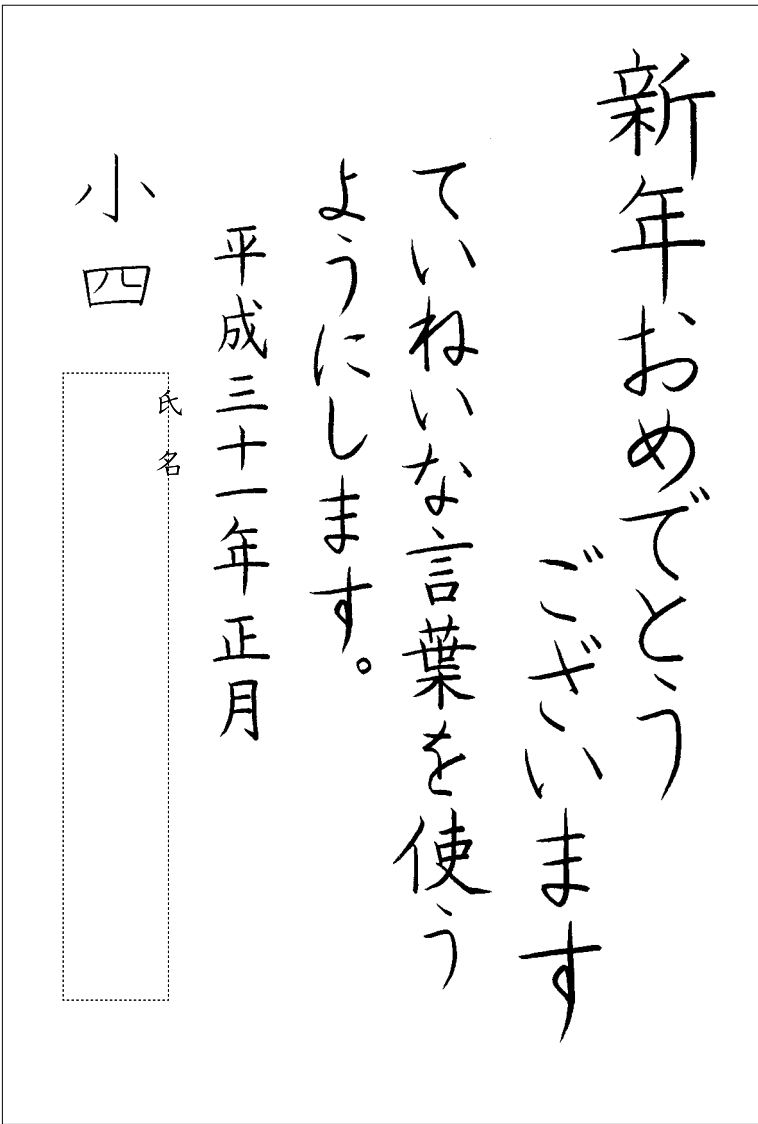 新年おめでとう
ございます
ていねいな言葉を使う
ようにします。
平成三十一年正月
小四
氏名